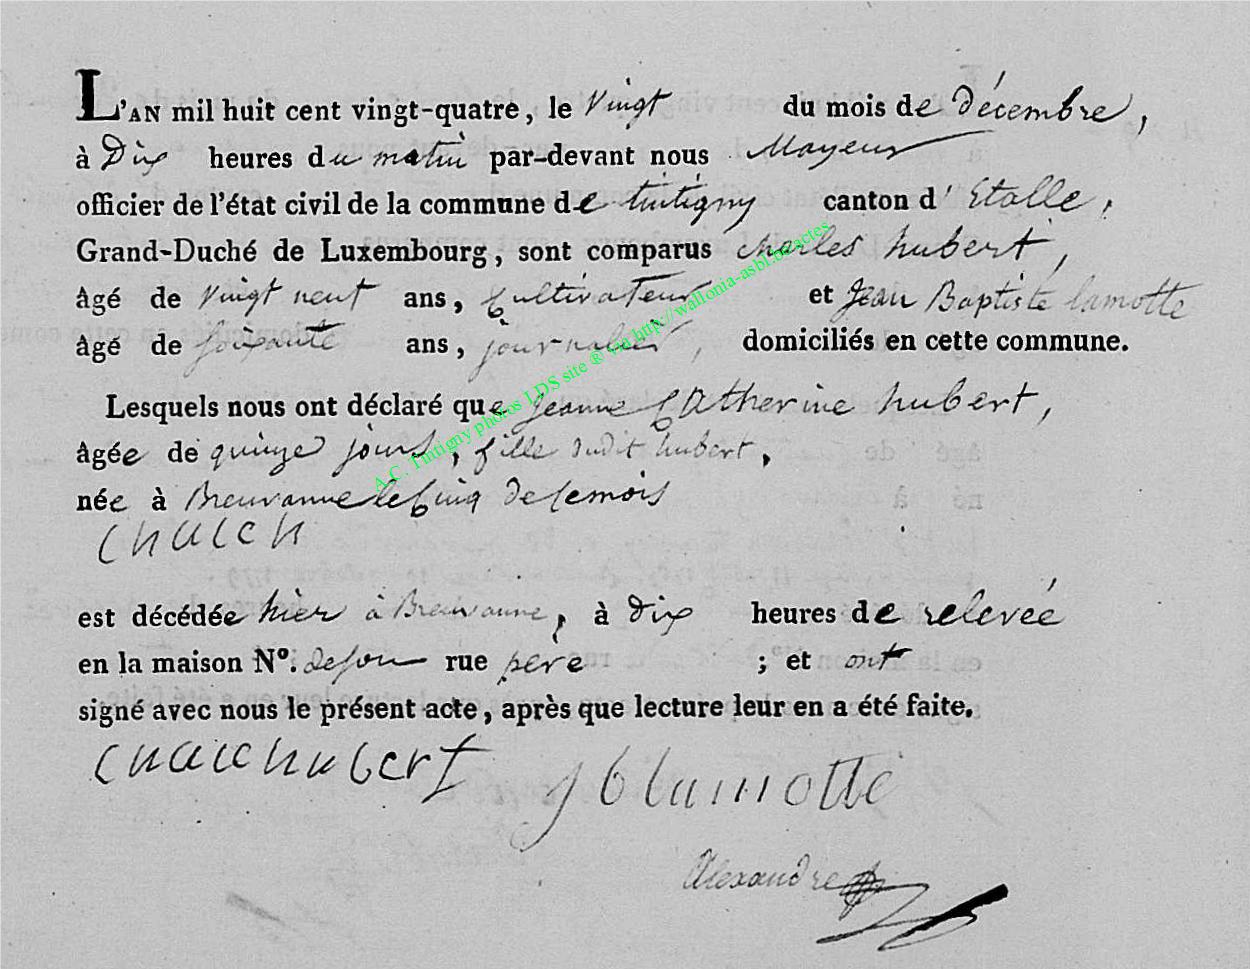 L'AN mil huit cent vingt-quatre, le Vingt du mois de décembre,
à Dix heures du matin par-devant nous Mayeur
officier de l'état civil de la commune de tintigny canton d'Etalle,
Grand-Duché de Luxembourg, sont comparus charles hubert,
âgé de Vingt neuf ans, Cultivateur et Jean Baptiste lamotte
âgé de soixante ans, journalier, domiciliés en cette commune.
Lesquels nous ont déclaré que jeanne CAtherine hubert,
âgée de quinze jours, fille dudit hubert,
née à Breuvanne le Cinq de ce mois
chalch
est décédée hier à Breuvanne, à dix heures de relevée
en la maison N°. de son rue père ; et ont
signé avec nous le présent acte, après que lecture leur en a été faite.
chalchubert
jblamotte
Alexandre
A.C. Tintigny photos LDS site ® via http://wallonia-asbl.be/actes